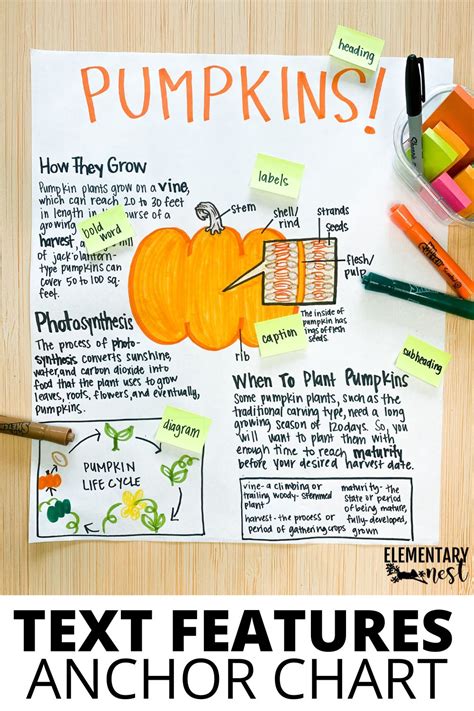 heading
PUMPKINS!
How They Grow
Pumpkin plants grow on a vine,
which can reach 20 to 30 feet
in length in urse of a
growing
harvest, a n
of jack'o lantern-
type pumpkins can
cover 50 to 100 sq.
feet.
bold
word
labels
stem
shell/
rind
strands
seeds
flesh/
pulp
The inside of
pumpkin has
ings of flesh
seeds.
caption
rib
Photosynthesis
The process of photo-
synthesis converts sunshine,
water, and carbon dioxide into
food that the plant uses to grow
leaves, roots, flowers, and eventually,
pumpkins.
subheading
When To Plant Pumpkins
Some pumpkin plants, such as the
traditional carving type, need a long
growing season of 120 days. So, you
will want to plant them with
enough time to reach maturity
before your desired harvest date.
diagram
PUMPKIN
LIFE CYCLE
vine- a climbing or
trailing woody-stemmed
plant
harvest- the process or
period of gathering crops
maturity- the
state or period
of being mature,
fully-developed,
grown
Sharpie
ELEMENTARY
nest
TEXT FEATURES
ANCHOR CHART